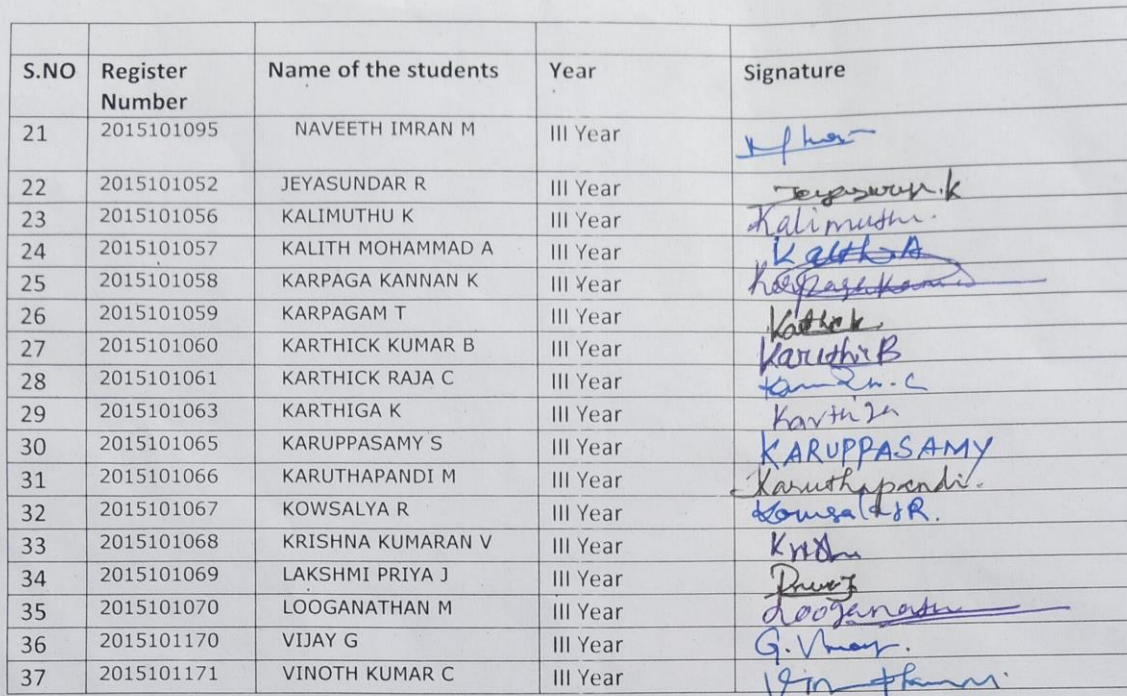 S.NO Register Number Name of the students Year Signature
21 2015101095 NAVEETH IMRAN M III Year
22 2015101052 JEYASUNDAR R III Year
23 2015101056 KALIMUTHU K III Year Kalimuthu.
24 2015101057 KALITH MOHAMMAD A III Year
25 2015101058 KARPAGA KANNAN K III Year
26 2015101059 KARPAGAM T III Year
27 2015101060 KARTHICK KUMAR B III Year
28 2015101061 KARTHICK RAJA C III Year
29 2015101063 KARTHIGA K III Year
30 2015101065 KARUPPASAMY S III Year KARUPPASAMY
31 2015101066 KARUTHAPANDI M III Year Karuthapandi.
32 2015101067 KOWSALYA R III Year
33 2015101068 KRISHNA KUMARAN V III Year
34 2015101069 LAKSHMI PRIYA J III Year
35 2015101070 LOOGANATHAN M III Year
36 2015101170 VIJAY G III Year
37 2015101171 VINOTH KUMAR C III Year